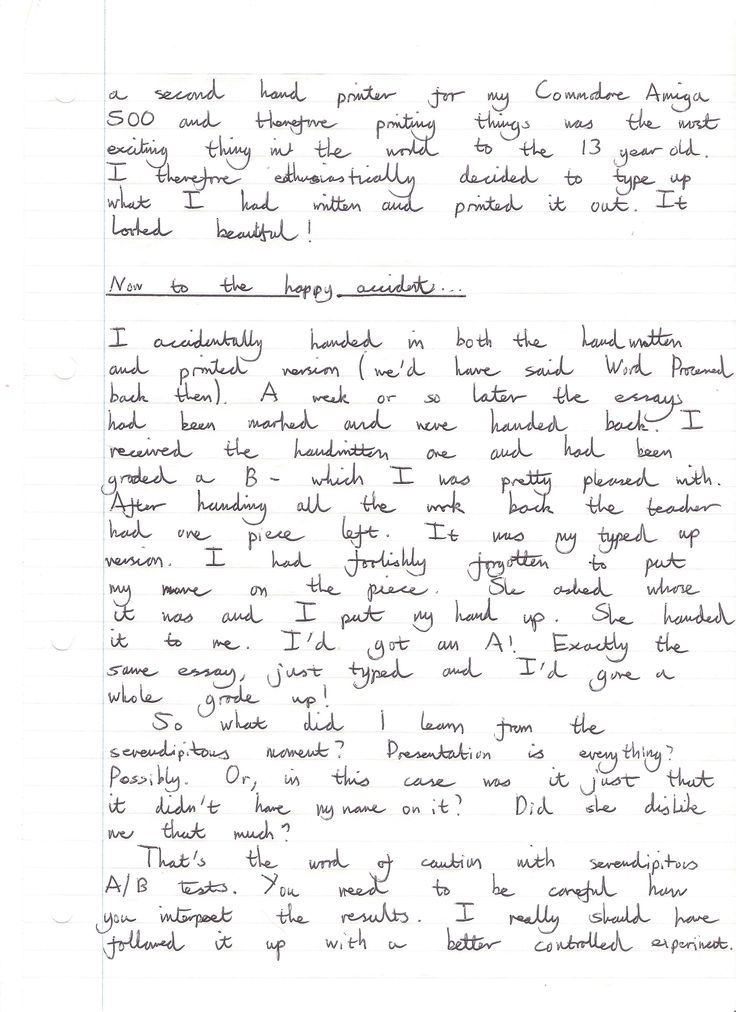 a second hand printer for my Commodore Amiga
500 and therefore printing things was the most
exciting thing in the world to the 13 year old.
I therefore ethusiastically decided to type up
what I had written and printed it out. It
looked beautiful!
Now to the happy accident...
I accidentally handed in both the handwritten
and printed version (we'd have said Word Processed
back then). A week or so later the essays
had been marked and were handed back. I
received the handwritten one and had been
graded a B - which I was pretty pleased with.
After handing all the work back the teacher
had one piece left. It was my typed up
version. I had foolishly forgotten to put
my name on the piece. She asked whose
it was and I put my hand up. She handed
it to me. I'd got an A! Exactly the
same essay, just typed and I'd gone a
whole grade up!
So what did I learn from the
serendipitous moment? Presentation is everything?
Possibly. Or, in this case was it just that
it didn't have my name on it? Did she dislike
me that much?
That's the word of caution with serendipitous
A/B tests. You need to be careful how
you interpret the results. I really should have
followed it up with a better controlled experiment.